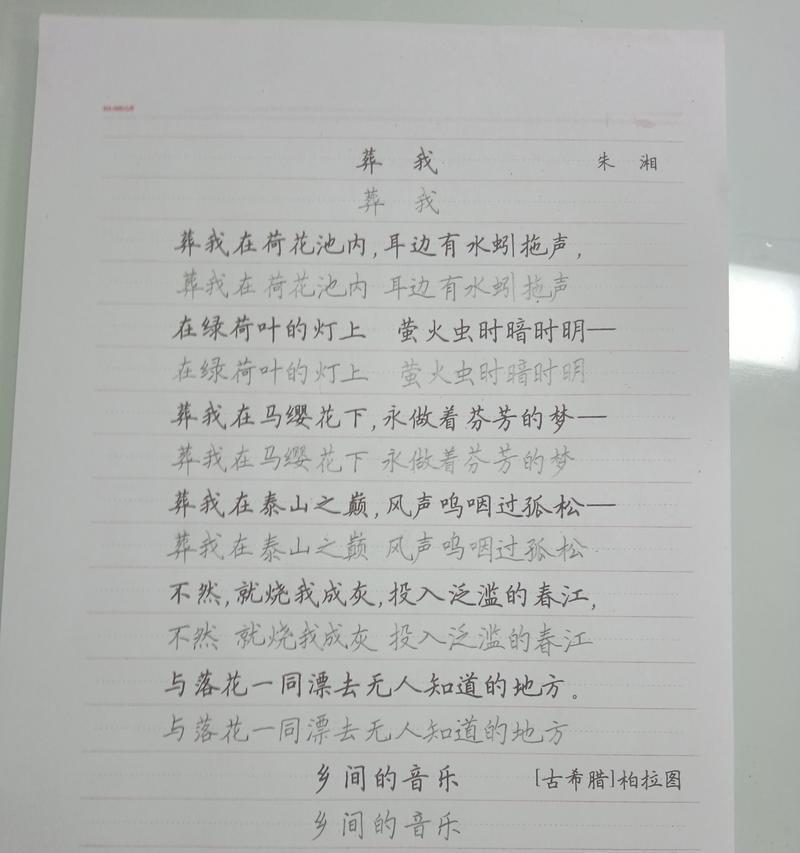 葬 我 朱 湘
葬 我
葬我在荷花池内,耳边有水蚓拖声,
葬我在荷花池内 耳边有水蚓拖声
在绿荷叶的灯上 萤火虫时暗时明—
在绿荷叶的灯上 萤火虫时暗时明
葬我在马缨花下,永做着芬芳的梦—
葬我在马缨花下 永做着芬芳的梦
葬我在泰山之巅,风声呜咽过孤松—
葬我在泰山之巅 风声呜咽过孤松
不然,就烧我成灰,投入泛滥的春江,
不然 就烧我成灰 投入泛滥的春江
与落花一同漂去无人知道的地方。
与落花一同漂去无人知道的地方
乡间的音乐 [古希腊]柏拉图
乡间的音乐